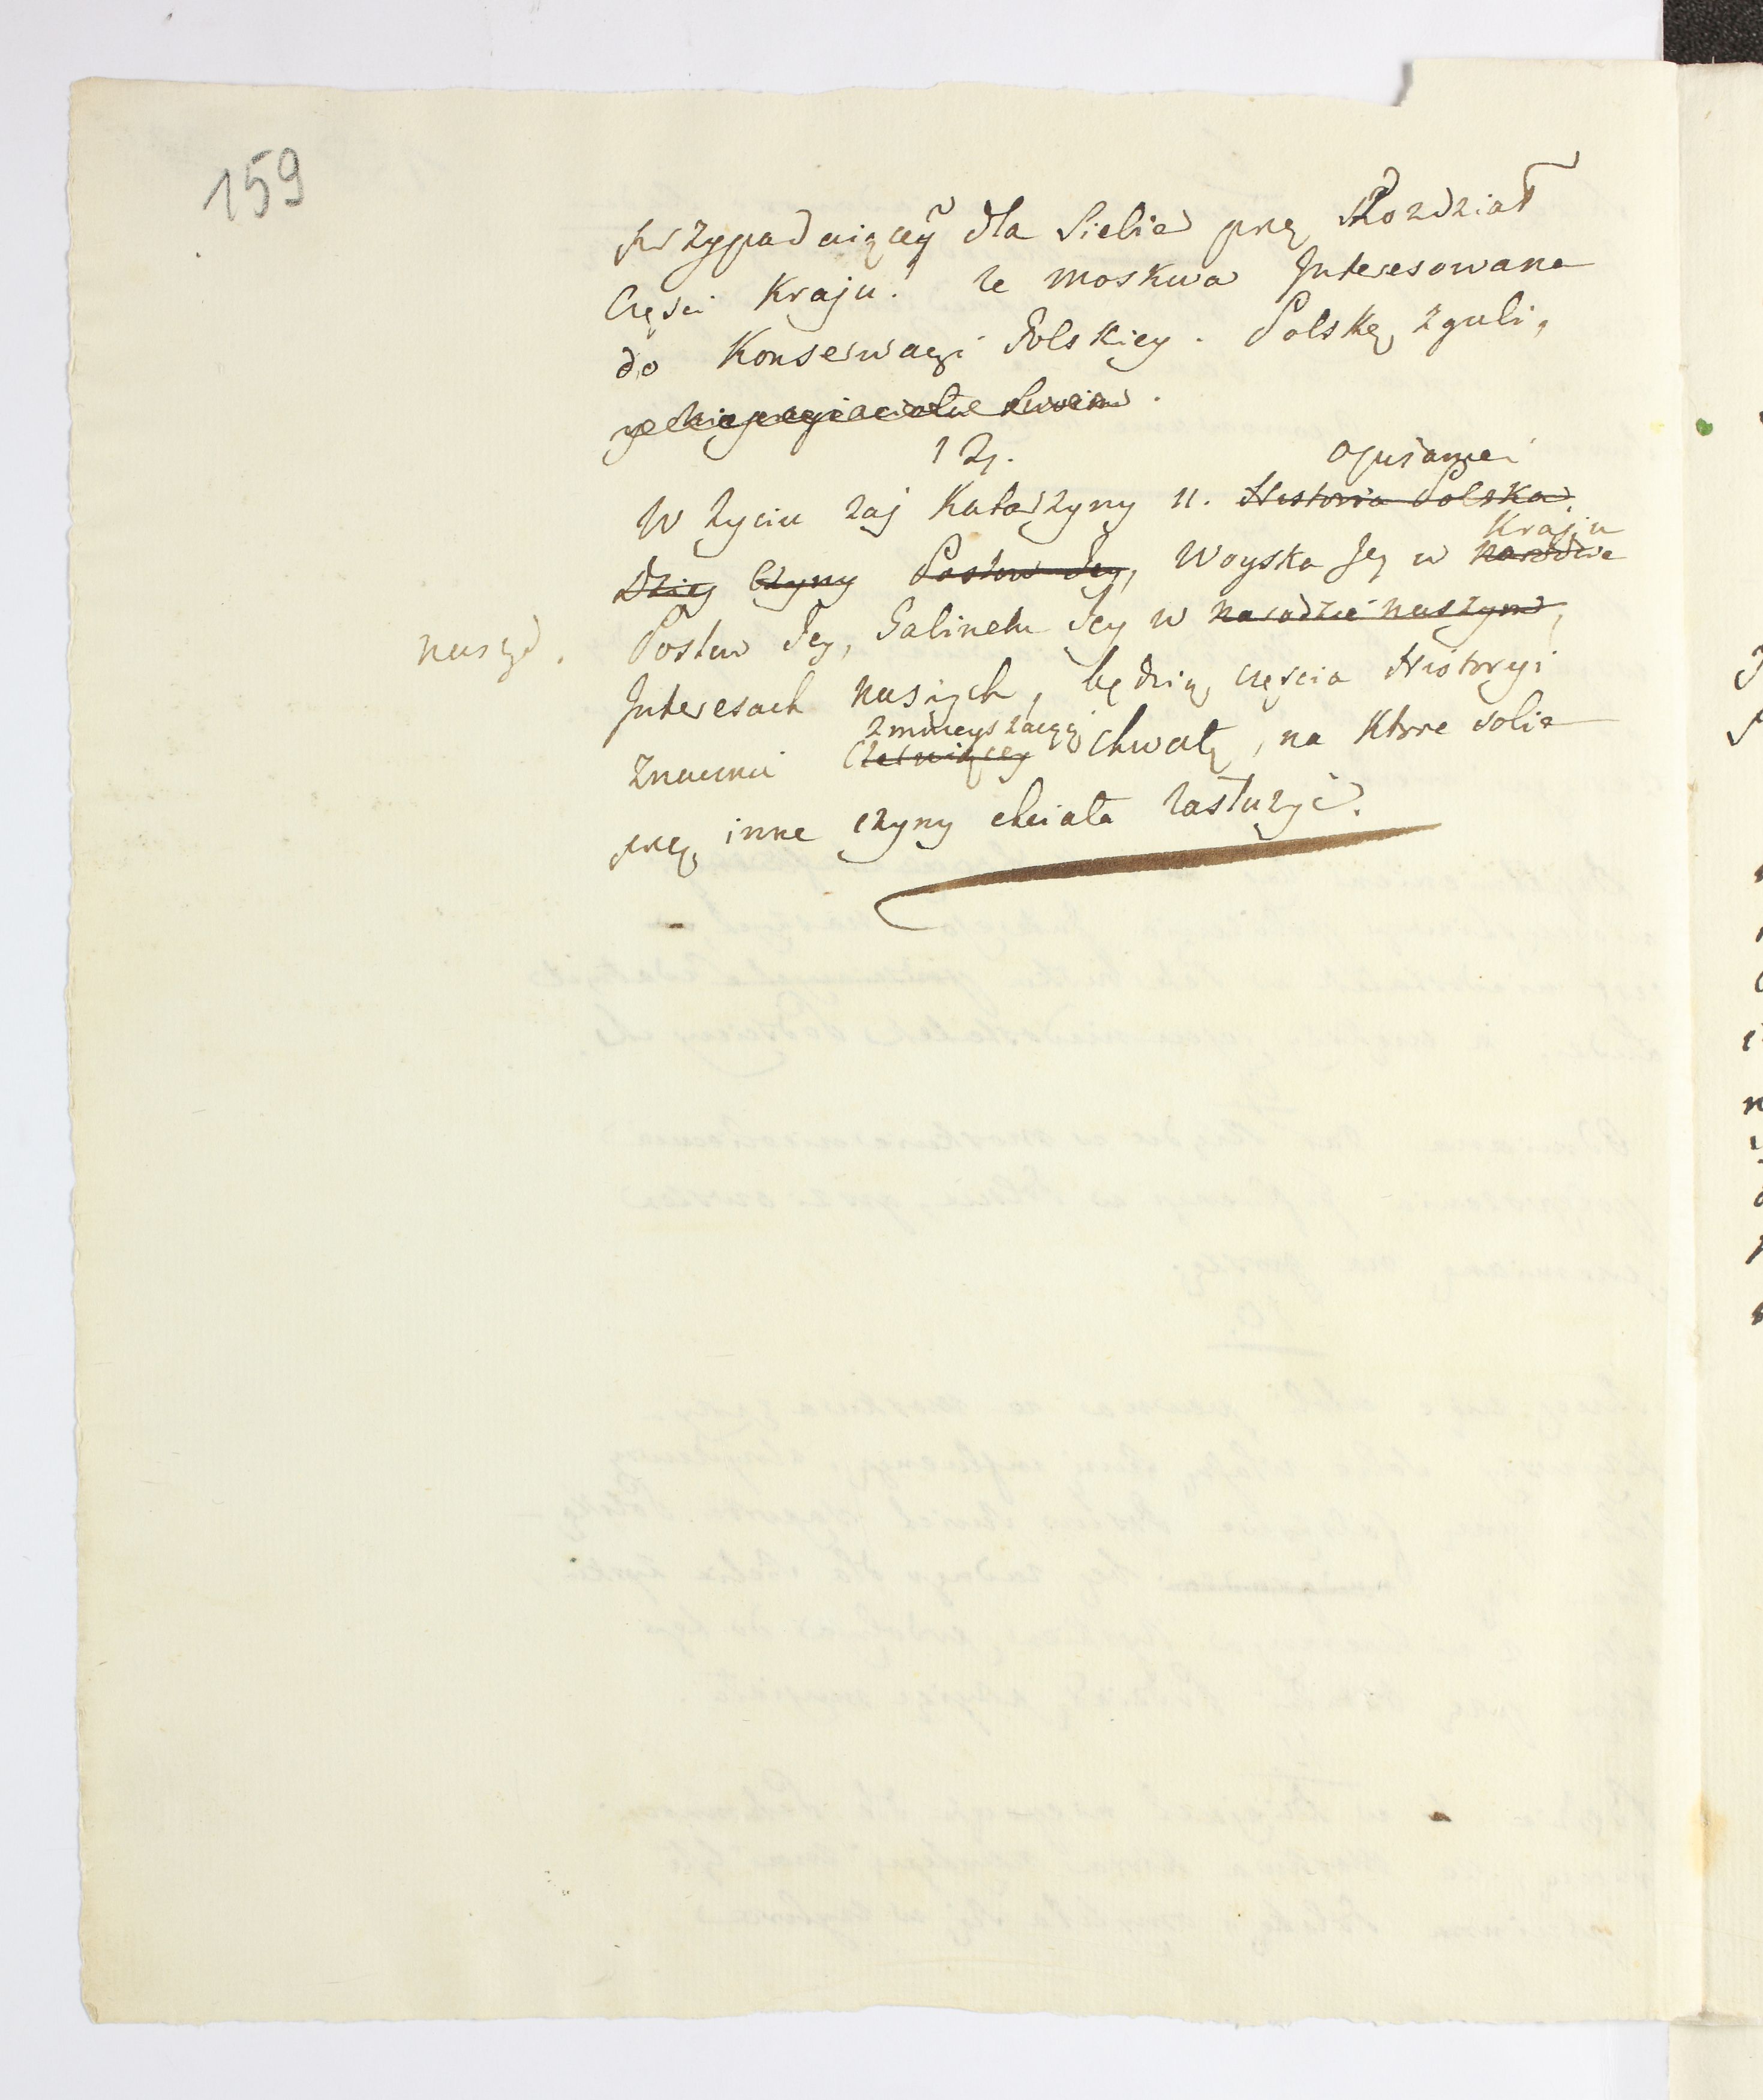 159
przypadaiącey dla Siebie przę Rozdział
Części Kraju. że Moskwa Interesowana
do Konserwacyi Polskiey. Polskę zgubi,
12.
opisanie
W życiu zaś Katarzyny II. Historia Polska,
Kraju
Dzieje Czyny Posłów Jey, Woyska Jey w narodzie
naszym. Posłów Jey, Gabinetu Jey w narodzie naszym,
Interesach naszych, będzie częścia Historyi
zmnieyszaiący
znaczni chwałę, na ktore sobie
przę inne czyny chciała zasłużyć.